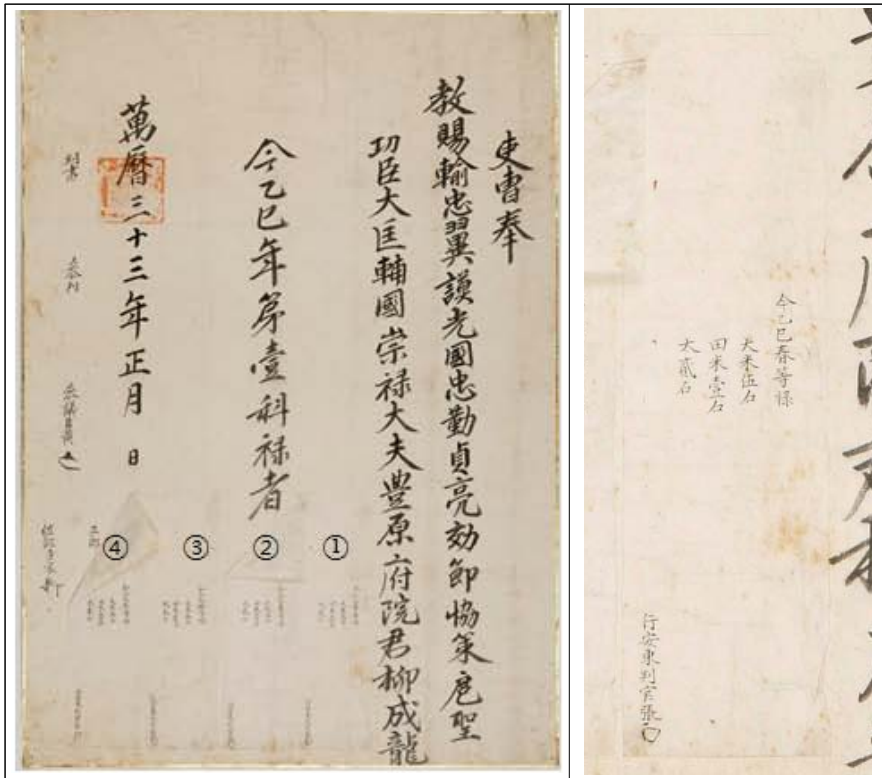 吏曹奉
教賜輸忠翼謨光國忠勤貞亮効節協策扈聖
功臣大匡輔國崇祿大夫豊原府院君柳成龍
今乙巳年第壹科祿者
①
②
③
④
萬曆三十三年正月 日
判書 參判 參議
正郎
佐郎
今乙巳春等祿
大米伍石
田米壹石
太貳石
行安東判官張